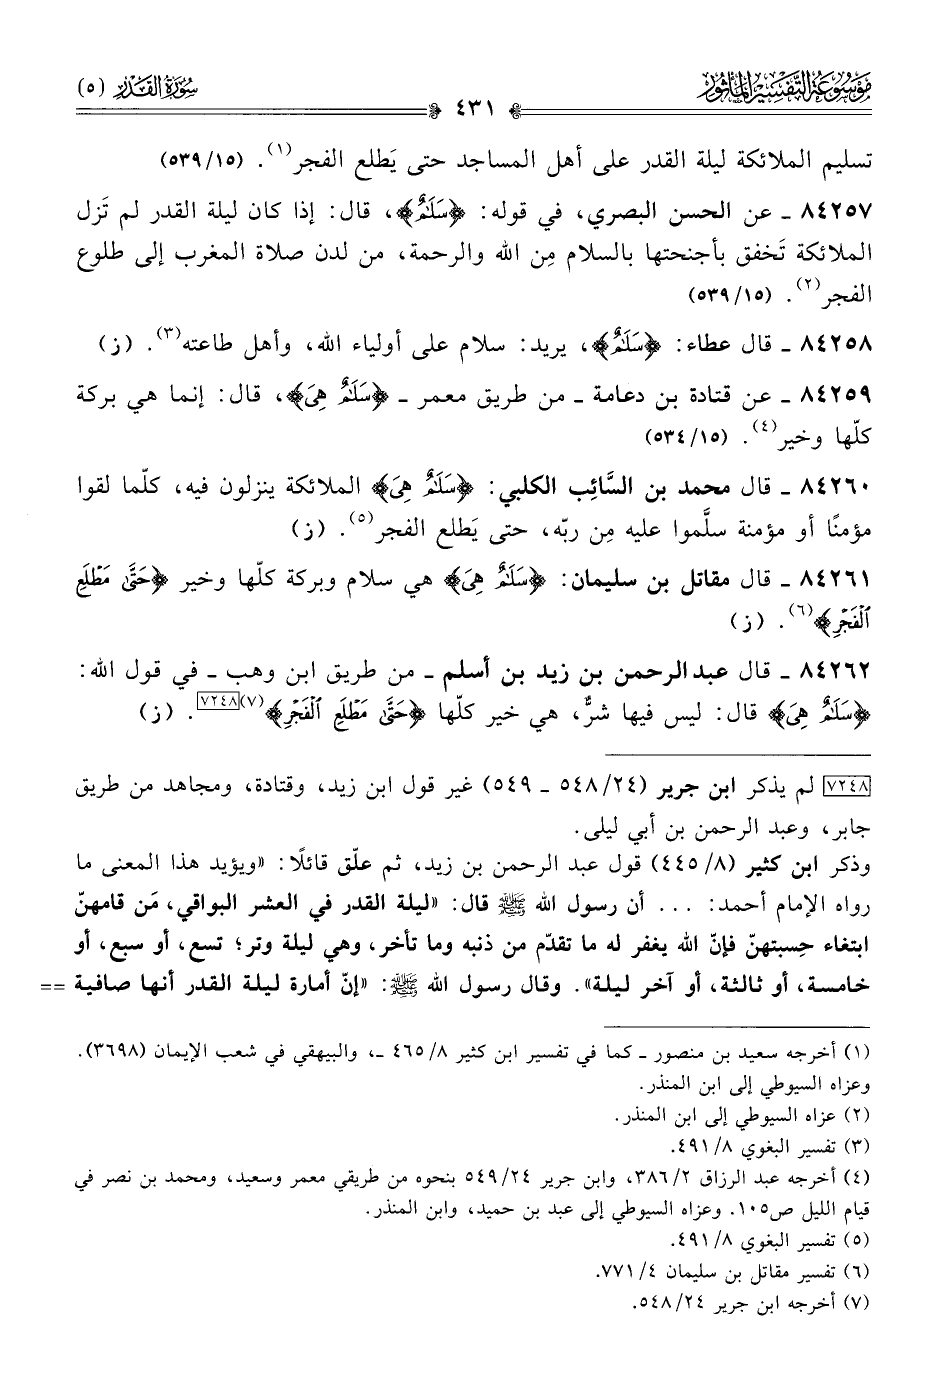 موسوعة التفسير المأثور
سورة القدر (٥)
٤٣١
تسليم الملائكة ليلة القدر على أهل المساجد حتى يَطلع الفجر(١). (١٥/ ٥٣٩)
٨٤٢٥٧ ـ عن الحسن البصري، في قوله: ﴿سَلَٰمٌ﴾، قال: إذا كان ليلة القدر لم تَزل
الملائكة تَخفق بأجنحتها بالسلام مِن الله والرحمة، من لدن صلاة المغرب إلى طلوع
الفجر(٢). (١٥/ ٥٣٩)
٨٤٢٥٨ ـ قال عطاء: ﴿سَلَٰمٌ﴾، يريد: سلام على أولياء الله، وأهل طاعته(٣). (ز)
٨٤٢٥٩ ـ عن قتادة بن دعامة ـ من طريق معمر ـ ﴿سَلَٰمٌ هِىَ﴾، قال: إنما هي بركة
كلّها وخير(٤). (١٥/ ٥٣٤)
٨٤٢٦٠ ـ قال محمد بن السَّائِب الكلبي: ﴿سَلَٰمٌ هِىَ﴾ الملائكة ينزلون فيه، كلّما لقوا
مؤمنًا أو مؤمنة سلَّموا عليه مِن ربّه، حتى يَطلع الفجر(٥). (ز)
٨٤٢٦١ ـ قال مقاتل بن سليمان: ﴿سَلَٰمٌ هِىَ﴾ هي سلام وبركة كلّها وخير ﴿حَتَّىٰ مَطْلَعِ
ٱلْفَجْرِ﴾(٦). (ز)
٨٤٢٦٢ ـ قال عبدالرحمن بن زيد بن أسلم ـ من طريق ابن وهب ـ في قول الله:
﴿سَلَٰمٌ هِىَ﴾ قال: ليس فيها شرٌّ، هي خير كلّها ﴿حَتَّىٰ مَطْلَعِ ٱلْفَجْرِ﴾(٧)٧٢٤٨. (ز)
٧٢٤٨ لم يذكر ابن جرير (٢٤/ ٥٤٨ ـ ٥٤٩) غير قول ابن زيد، وقتادة، ومجاهد من طريق
جابر، وعبد الرحمن بن أبي ليلى.
وذكر ابن كثير (٨/ ٤٤٥) قول عبد الرحمن بن زيد، ثم علّق قائلًا: «ويؤيد هذا المعنى ما
رواه الإمام أحمد: ... أن رسول الله ﷺ قال: «ليلة القدر في العشر البواقي، مَن قامهنّ
ابتغاء حِسبتهنّ فإنّ الله يغفر له ما تقدّم من ذنبه وما تأخر، وهي ليلة وتر؛ تسع، أو سبع، أو
خامسة، أو ثالثة، أو آخر ليلة». وقال رسول الله ﷺ: «إنّ أمارة ليلة القدر أنها صافية ==
(١) أخرجه سعيد بن منصور ـ كما في تفسير ابن كثير ٨/ ٤٦٥ ـ، والبيهقي في شعب الإيمان (٣٦٩٨).
وعزاه السيوطي إلى ابن المنذر.
(٢) عزاه السيوطي إلى ابن المنذر.
(٣) تفسير البغوي ٨/ ٤٩١.
(٤) أخرجه عبد الرزاق ٢/ ٣٨٦، وابن جرير ٢٤/ ٥٤٩ بنحوه من طريقي معمر وسعيد، ومحمد بن نصر في
قيام الليل ص١٠٥. وعزاه السيوطي إلى عبد بن حميد، وابن المنذر.
(٥) تفسير البغوي ٨/ ٤٩١.
(٦) تفسير مقاتل بن سليمان ٤/ ٧٧١.
(٧) أخرجه ابن جرير ٢٤/ ٥٤٨.